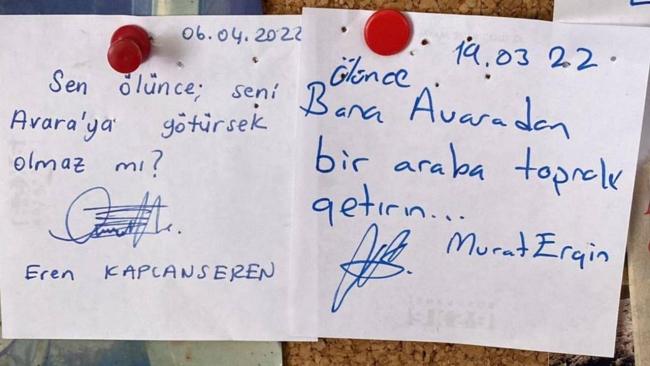 06.04.2022
Sen ölünce; seni
Avara'ya götürsek
olmaz mı?
Eren KAPLANSEREN
19.03 22
Ölünce
Bana Avaradan
bir araba toprak
getirin...
Murat Ergin